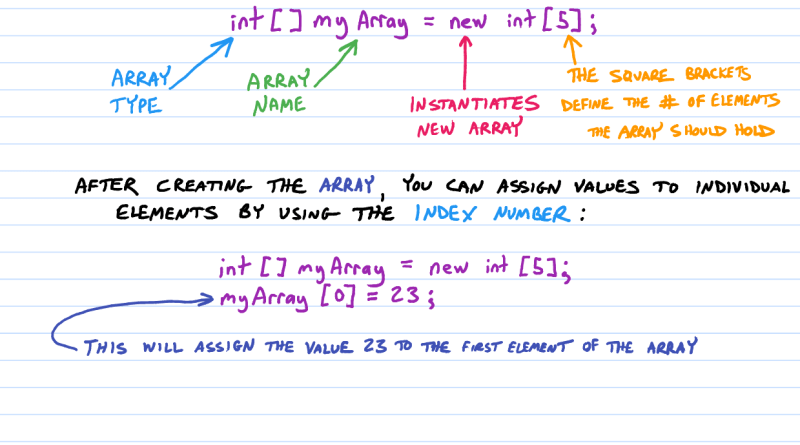 int[] myArray = new int[5];
ARRAY TYPE
ARRAY NAME
INSTANTIATES
NEW ARRAY
THE SQUARE BRACKETS
DEFINE THE # OF ELEMENTS
THE ARRAY SHOULD HOLD
AFTER CREATING THE ARRAY, YOU CAN ASSIGN VALUES TO INDIVIDUAL
ELEMENTS BY USING THE INDEX NUMBER:
int[] myArray = new int[5];
myArray[0] = 23;
THIS WILL ASSIGN THE VALUE 23 TO THE FIRST ELEMENT OF THE ARRAY